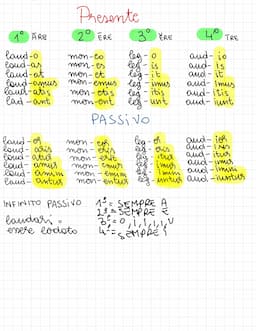 Presente
1° ARE 2° ERE 3° ERE 4° IRE
laud-o mon-eo leg-o aud-io
laud-as mon-es leg-is aud-is
laud-at mon-et leg-it aud-it
laud-amus mon-emus leg-imus aud-imus
laud-atis mon-etis leg-itis aud-itis
laud-ant mon-ent leg-unt aud-iunt
PASSIVO
laud-or mon-eor leg-or aud-ior
laud-aris mon-eris leg-eris aud-iris
laud-atur mon-etur leg-itur aud-itur
laud-amur mon-emur leg-imur aud-imur
laud-amini mon-emini leg-imini aud-imini
laud-antur mon-entur leg-untur aud-iuntur
INFINITO PASSIVO 1°= SEMPRE A
2°= SEMPRE E
laudari = 3°= O, I, I, I, I, U
essere lodato 4°= SEMPRE I